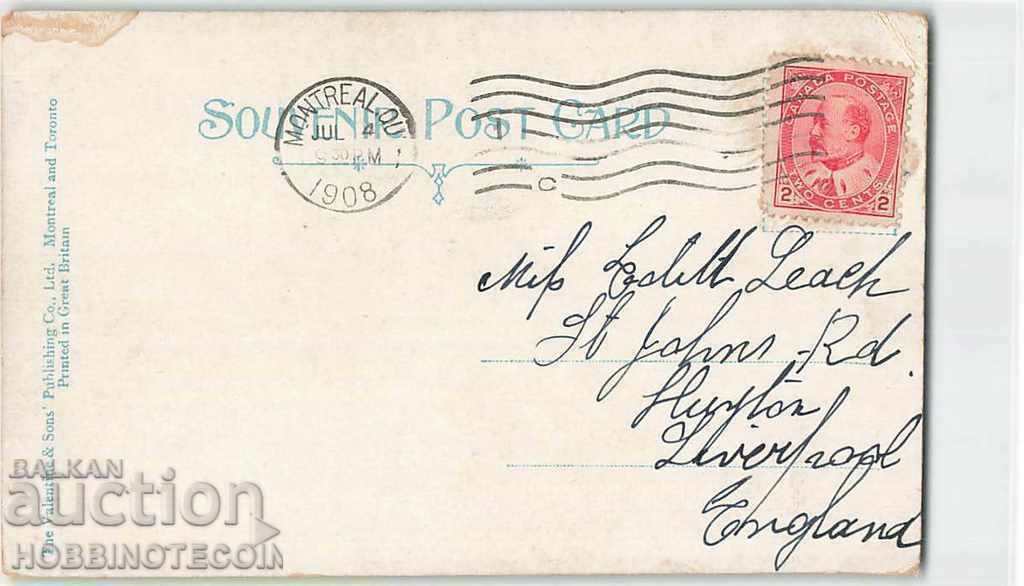 SOUVENIR POST CARD
MONTREAL QU
JUL 4
9 30 PM
1908
1
C
CANADA POSTAGE
2 TWO CENTS 2
Miss Edith Leach
St Johns Rd.
Huyton
Liverpool
England
The Valentine & Sons' Publishing Co., Ltd. Montreal and Toronto
Printed in Great Britain
BALKAN
auction
HOBBINOTECOIN